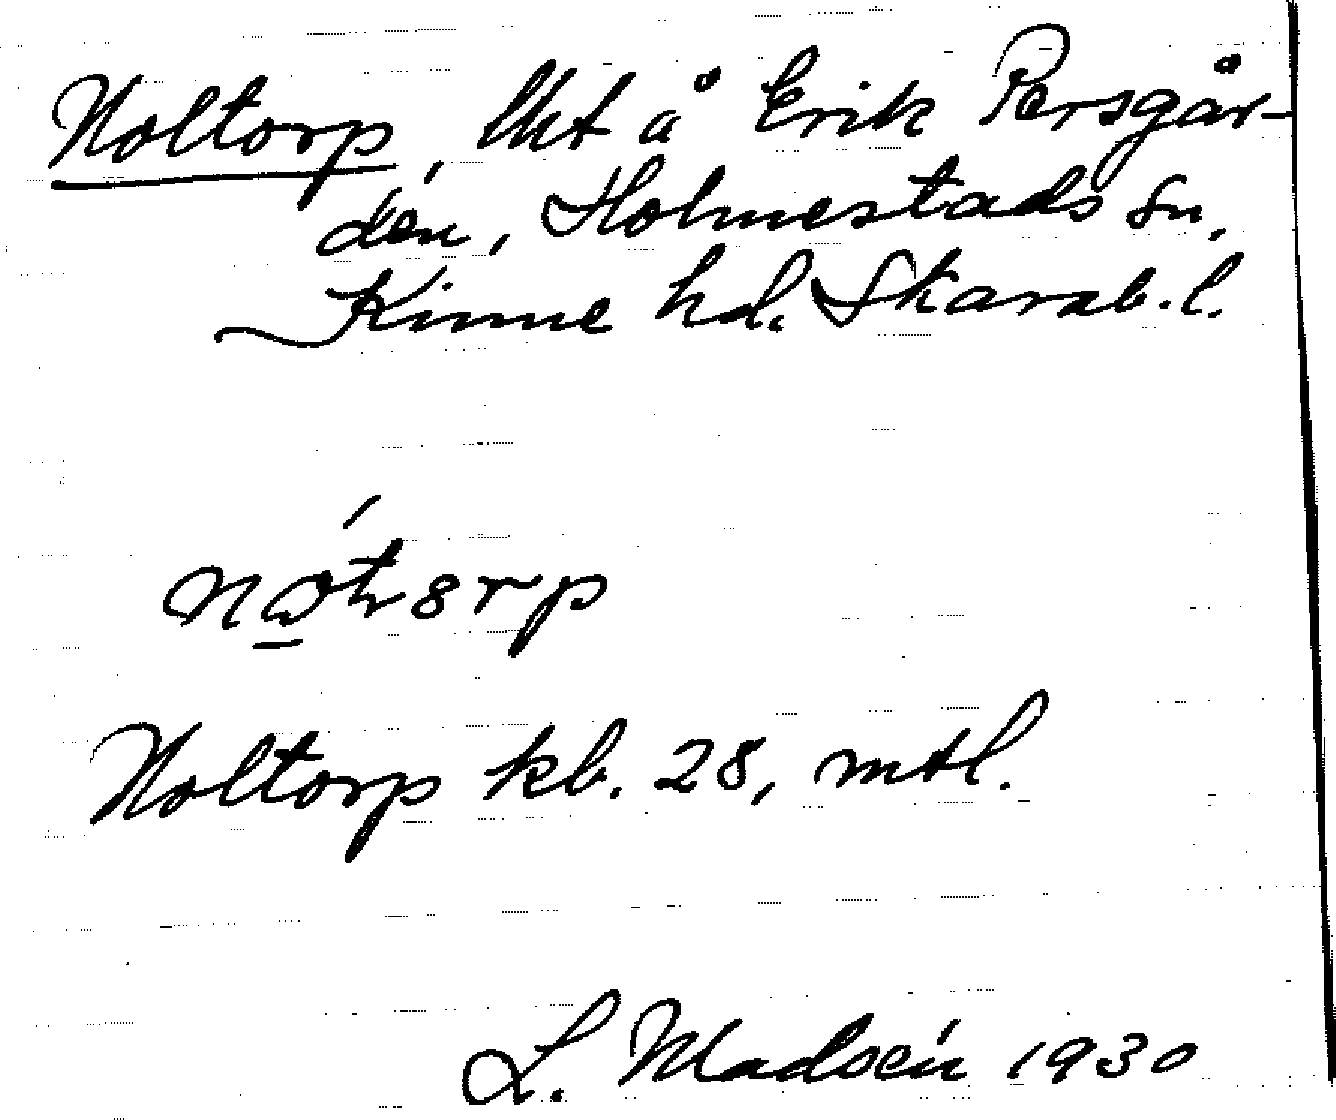 Noltorp, lht å Erik Persgår-
den, Holmestads sn,
Kinne hd. Skarab. l.
Noltorp kb. 28, mtl.
L. Madsén 1930